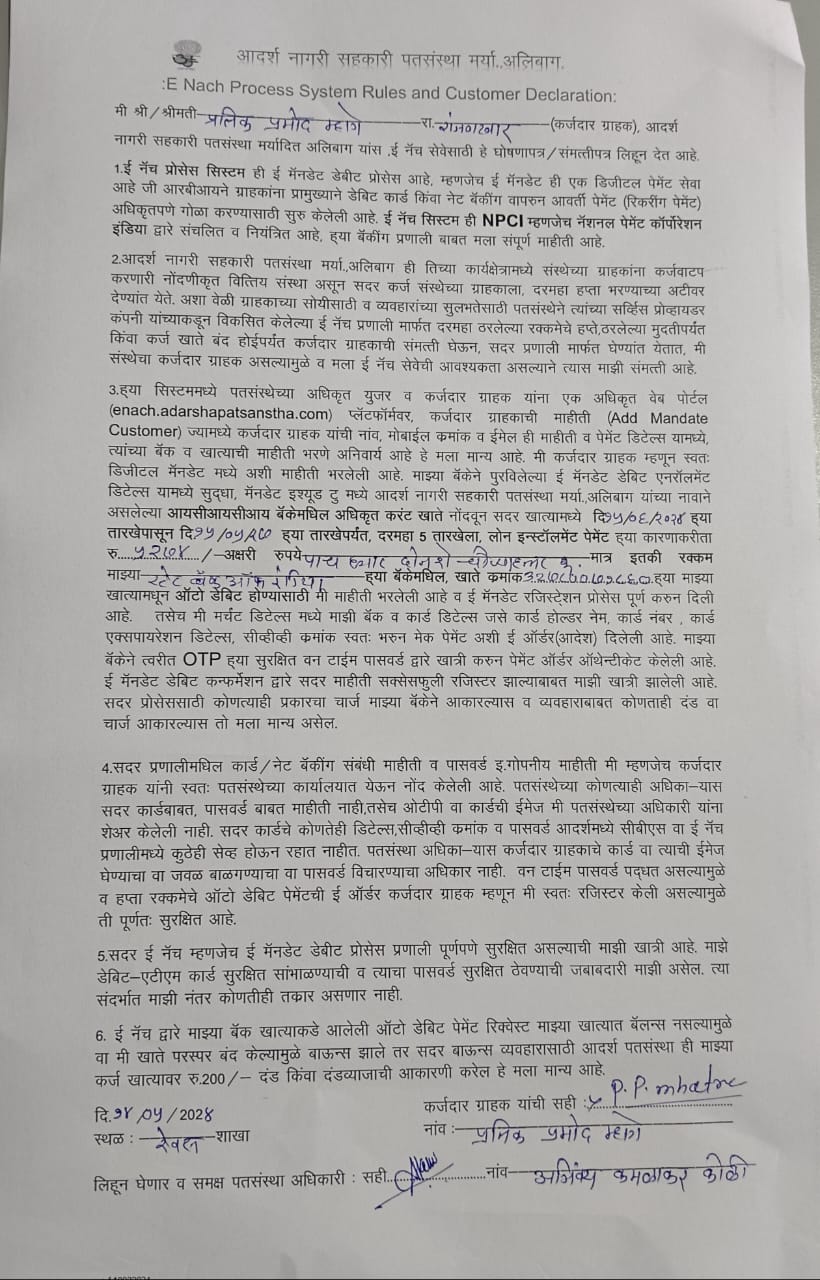 आदर्श नागरी सहकारी पतसंस्था मर्या.,अलिबाग.
:E Nach Process System Rules and Customer Declaration:
मी श्री/श्रीमती प्रमोद म्हात्रे रा. (कर्जदार ग्राहक), आदर्श
नागरी सहकारी पतसंस्था मर्यादित अलिबाग यांस .ई नॅच सेवेसाठी हे घोषणापत्र/संमत्तीपत्र लिहून देत आहे.
1.ई नॅच प्रोसेस सिस्टिम ही ई मॅनडेट डेबीट प्रोसेस आहे, म्हणजेच ई मॅनडेट ही एक डिजीटल पेमेंट सेवा
आहे जी आरबीआयने ग्राहकांना प्रामुख्याने डेबिट कार्ड किंवा नेट बॅकींग वापरुन आवर्ती पेमेंट (रिकरींग पेमेंट)
अधिकृतपणे गोळा करण्यासाठी सुरु केलेली आहे. ई नॅच सिस्टिम ही NPCI म्हणजेच नॅशनल पेमेंट कॉर्पोरेशन
इंडिया द्वारे संचलित व नियंत्रित आहे, ह्या बॅकींग प्रणाली बाबत मला संपूर्ण माहीती आहे.
2.आदर्श नागरी सहकारी पतसंस्था मर्या.,अलिबाग ही तिच्या कार्यक्षेत्रामध्ये संस्थेच्या ग्राहकांना कर्जवाटप
करणारी नोंदणीकृत वित्तिय संस्था असून सदर कर्ज संस्थेच्या ग्राहकाला, दरमहा हप्ता भरण्याच्या अटीवर
देण्यांत येते. अशा वेळी ग्राहकाच्या सोयीसाठी व व्यवहारांच्या सुलभतेसाठी पतसंस्थेने त्यांच्या सर्व्हिस प्रोव्हायडर
कंपनी यांच्याकडून विकसित केलेल्या ई नॅच प्रणाली मार्फत दरमहा ठरलेल्या रक्कमेचे हप्ते,ठरलेल्या मुदतीपर्यंत
किंवा कर्ज खाते बंद होईपर्यंत कर्जदार ग्राहकाची संमत्ती घेऊन, सदर प्रणाली मार्फत घेण्यांत येतात, मी
संस्थेचा कर्जदार ग्राहक असल्यामुळे व मला ई नॅच सेवेची आवश्यकता असल्याने त्यास माझी संमत्ती आहे.
3.ह्या सिस्टिममध्ये पतसंस्थेच्या अधिकृत युजर व कर्जदार ग्राहक यांना एक अधिकृत वेब पोर्टल
(enach.adarshapatsanstha.com) प्लॅटफॉर्मवर, कर्जदार ग्राहकाची माहीती (Add Mandate
Customer) ज्यामध्ये कर्जदार ग्राहक यांची नांव, मोबाईल क्रमांक व ईमेल ही माहीती व पेमेंट डिटेल्स यामध्ये,
त्यांच्या बॅक व खात्याची माहीती भरणे अनिवार्य आहे हे मला मान्य आहे. मी कर्जदार ग्राहक म्हणून स्वतः
डिजीटल मॅनडेट मध्ये अशी माहीती भरलेली आहे. माझ्या बॅकेने पुरविलेल्या ई मॅनडेट डेबिट एनरॉलमेंट
डिटेल्स यामध्ये सुद्धा, मॅनडेट इश्यूड टु मध्ये आदर्श नागरी सहकारी पतसंस्था मर्या.,अलिबाग यांच्या नावाने
असलेल्या आयसीआयसीआय बॅकेमधिल अधिकृत करंट खाते नोंदवून सदर खात्यामध्ये दि१५/०६/२०२४ ह्या
तारखेपासून दि ह्या तारखेपर्यंत, दरमहा 5 तारखेला, लोन इन्स्टॉलमेंट पेमेंट ह्या कारणाकरीता
रु. /-अक्षरी रुपये पाच हजार दोनशे रु. मात्र इतकी रक्कम
माझ्या स्टेट बँक ऑफ इंडिया ह्या बॅकेमधिल, खाते क्रमांक ह्या माझ्या
खात्यामधून ऑटो डेबिट होण्यासाठी मी माहीती भरलेली आहे व ई मॅनडेट रजिस्टेशन प्रोसेस पूर्ण करुन दिली
आहे. तसेच मी मर्चंट डिटेल्स मध्ये माझी बॅक व कार्ड डिटेल्स जसे कार्ड होल्डर नेम, कार्ड नंबर , कार्ड
एक्सपायरेशन डिटेल्स, सीव्हीव्ही क्रमांक स्वतः भरुन मेक पेमेंट अशी ई ऑर्डर(आदेश) दिलेली आहे. माझ्या
बॅकेने त्वरीत OTP ह्या सुरक्षित वन टाईम पासवर्ड द्वारे खात्री करुन पेमेंट ऑर्डर ऑथेन्टीकेट केलेली आहे.
ई मॅनडेट डेबिट कन्फर्मेशन द्वारे सदर माहीती सक्सेसफुली रजिस्टर झाल्याबाबत माझी खात्री झालेली आहे.
सदर प्रोसेससाठी कोणत्याही प्रकारचा चार्ज माझ्या बॅकेने आकारल्यास व व्यवहाराबाबत कोणताही दंड वा
चार्ज आकारल्यास तो मला मान्य असेल.
4.सदर प्रणालीमधिल कार्ड/नेट बॅकींग संबंधी माहीती व पासवर्ड इ.गोपनीय माहीती मी म्हणजेच कर्जदार
ग्राहक यांनी स्वतः पतसंस्थेच्या कार्यालयात येऊन नोंद केलेली आहे. पतसंस्थेच्या कोणत्याही अधिका-यास
सदर कार्डबाबत, पासवर्ड बाबत माहीती नाही,तसेच ओटीपी वा कार्डची ईमेज मी पतसंस्थेच्या अधिकारी यांना
शेअर केलेली नाही. सदर कार्डचे कोणतेही डिटेल्स,सीव्हीव्ही क्रमांक व पासवर्ड आदर्शमध्ये सीबीएस वा ई नॅच
प्रणालीमध्ये कुठेही सेव्ह होऊन रहात नाहीत. पतसंस्था अधिका-यास कर्जदार ग्राहकाचे कार्ड वा त्याची ईमेज
घेण्याचा वा जवळ बाळगण्याचा वा पासवर्ड विचारण्याचा अधिकार नाही. वन टाईम पासवर्ड पद्धत असल्यामुळे
व हप्ता रक्कमेचे ऑटो डेबिट पेमेंटची ई ऑर्डर कर्जदार ग्राहक म्हणून मी स्वतः रजिस्टर केली असल्यामुळे
ती पूर्णतः सुरक्षित आहे.
5.सदर ई नॅच म्हणजेच ई मॅनडेट डेबीट प्रोसेस प्रणाली पूर्णपणे सुरक्षित असल्याची माझी खात्री आहे. माझे
डेबिट-एटीएम कार्ड सुरक्षित सांभाळण्याची व त्याचा पासवर्ड सुरक्षित ठेवण्याची जबाबदारी माझी असेल. त्या
संदर्भात माझी नंतर कोणतीही तकार असणार नाही.
6. ई नॅच द्वारे माझ्या बॅक खात्याकडे आलेली ऑटो डेबिट पेमेंट रिक्वेस्ट माझ्या खात्यात बॅलन्स नसल्यामुळे
वा मी खाते परस्पर बंद केल्यामुळे बाऊन्स झाले तर सदर बाऊन्स व्यवहारासाठी आदर्श पतसंस्था ही माझ्या
कर्ज खात्यावर रु.200/- दंड किंवा दंडव्याजाची आकारणी करेल हे मला मान्य आहे.
कर्जदार ग्राहक यांची सही : P. P. mhatre
दि. /2024
नांव :- प्रमोद म्हात्रे
स्थळ : शाखा
लिहून घेणार व समक्ष पतसंस्था अधिकारी : सही. नांव- अजिंक्य कमळाकर कोळी